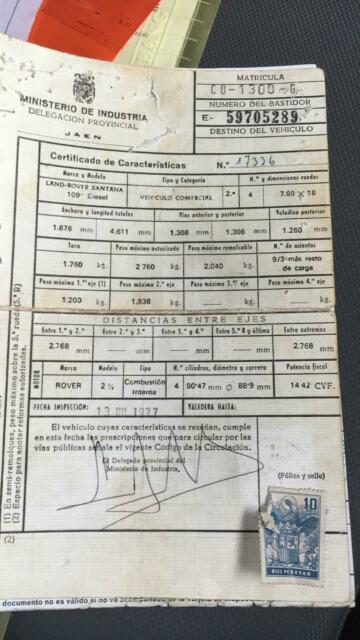 MINISTERIO DE INDUSTRIA
DELEGACION PROVINCIAL
JAEN
MATRICULA
CO-1300-G
NUMERO DEL BASTIDOR
E- 59705289
DESTINO DEL VEHICULO
Certificado de Características N.º 17326
Marca y Modelo Tipo y Categoría N.º y dimensiones ruedas
LAND-ROVER SANTANA
109" Diesel VEHICULO COMERCIAL 2.ª 4 7.50 × 16
Anchura y longitud totales Vías anterior y posterior Voladizo posterior
1.676 mm 4.611 mm 1.308 mm 1.308 mm 1.260 mm
Tara Peso máximo autorizado Peso máximo remolcable N.º de asientos
1.760 kg. 2 760 kg. 2.040 kg. 9/3 más resto
de carga
Peso máximo 1.er eje (1) Peso máximo 2.º eje Peso máximo 3.er eje Peso máximo 4.º eje
1.200 kg. 1.836 kg. — kg. — kg.
DISTANCIAS ENTRE EJES
Entre 1.º y 2.º Entre 2.º y 3.º Entre 3.º y 4.º Entre 5.ª R y último Entre extremos
2.768 mm — mm — mm — mm 2.768 mm
MOTOR
Marca Modelo Tipo N.º cilindros, diámetro y carrera Potencia fiscal
ROVER 2 ¼ Combustión
interna 4 90'47 mm Ø 88'9 mm 14 42 CVF.
FECHA INSPECCION: 13 JUL 1977 VALEDERA HASTA:
El vehículo cuyas características se reseñan, cumple
en esta fecha las prescripciones que para circular por las
vías públicas señala el vigente Código de la Circulación.
El Delegado provincial del
Ministerio de Industria,
(Póliza y sello)
10
DIEZ PESETAS
(1) En semi-remolques, peso máximo sobre la 5.ª rueda (5.ª R)
(2) Espacio para anotar reformas autorizadas.
(2)
documento no es válido si no va acompañado de la Tarjeta de